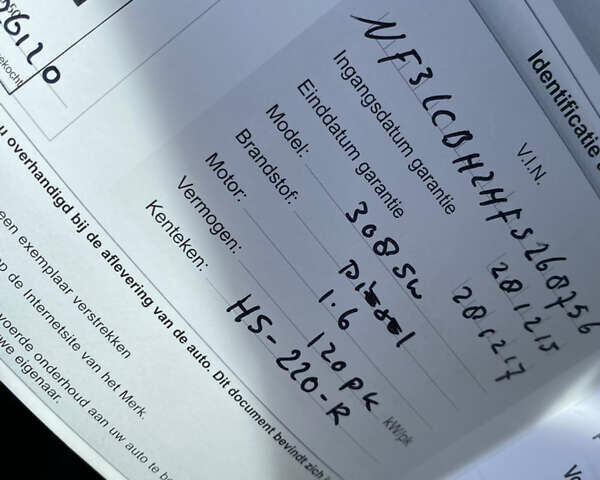 26120
Identificatie
V.I.N.
NF3LCBH2HFS268756
Ingangsdatum garantie 281215
Einddatum garantie 281217
Model: 308 SW
Brandstof: Diesel
Motor: 1.6
Vermogen: 120 PK kW/pk
Kenteken: HS-220-R
u overhandigd bij de aflevering van de auto. Dit document bevindt zich
een exemplaar verstrekken
op de Internetsite van het Merk.
voerde onderhoud aan uw auto te
we eigenaar.